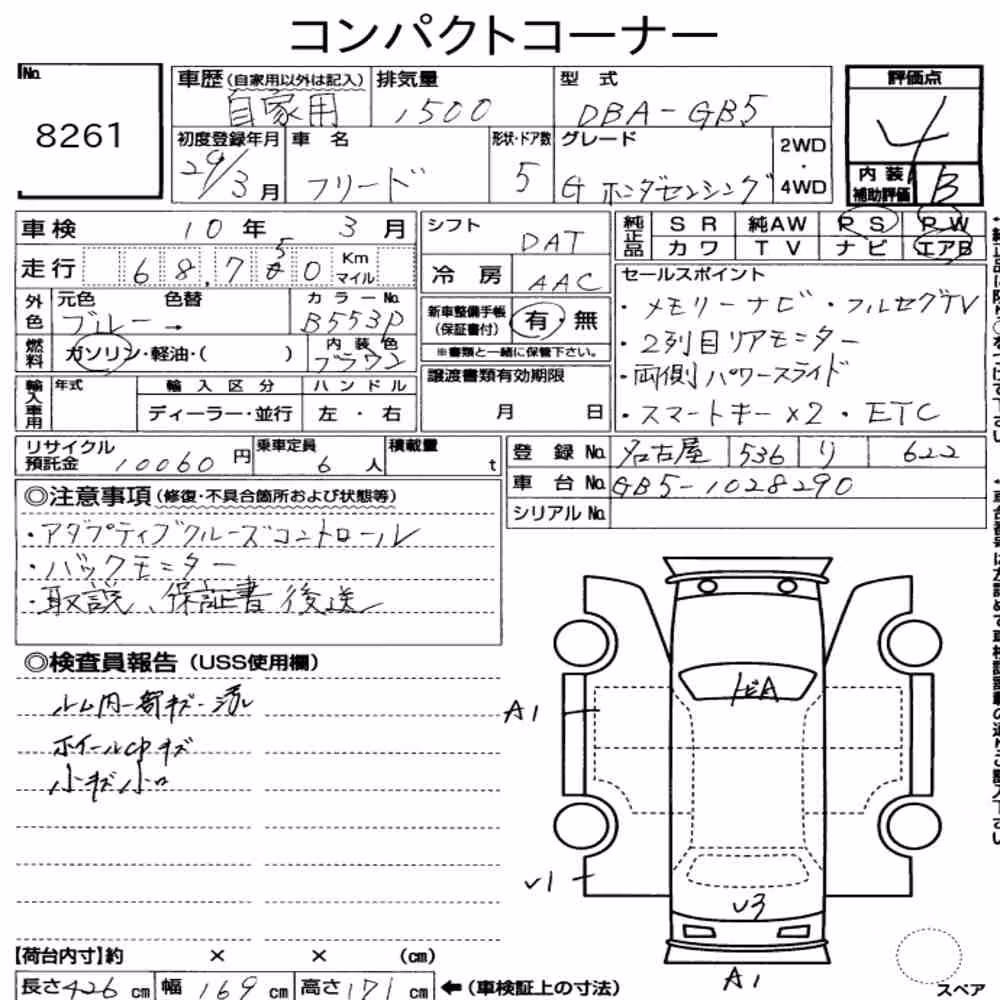 コンパクトコーナー
No.
8261
車歴(自家用以外は記入)
自家用
排気量
1500
型 式
DBA-GB5
評価点
4
初度登録年月
29/3月
車 名
フリード
形状・ドア数
5
グレード
G ホンダセンシング
2WD
・
4WD
内 装
補助評価
B
車検 10年 3月
走行 68,7 0 Km
マイル
シフト
DAT
冷 房
AAC
純正品
SR 純AW PS PW
カワ TV ナビ エアB
外色
元色 色替
ブルー→
カラーNo.
B553P
燃料
ガソリン・軽油・( )
内装色
ブラウン
新車整備手帳
(保証書付)
有・無
※書類と一緒に保管下さい。
セールスポイント
・メモリーナビ・フルセグTV
・2列目リアモニター
・両側パワースライド
・スマートキー×2・ETC
輸入車用
年式
輸入区分
ディーラー・並行
ハンドル
左・右
譲渡書類有効期限
月 日
リサイクル
預託金 10060円
乗車定員
6人
積載量
t
登 録 No. 名古屋 536 り 622
車 台 No. GB5-1028290
シリアル No.
◎注意事項(修復・不具合箇所および状態等)
・アダプティブクルーズコントロール
・バックモニター
・取説、保証書後送
◎検査員報告(USS使用欄)
ホイールCPキズ
小キズ小凹
A1
A1
3
A1
スペア
【荷台内寸】約 × × (cm)
長さ426cm 幅169cm 高さ171cm ←(車検証上の寸法)